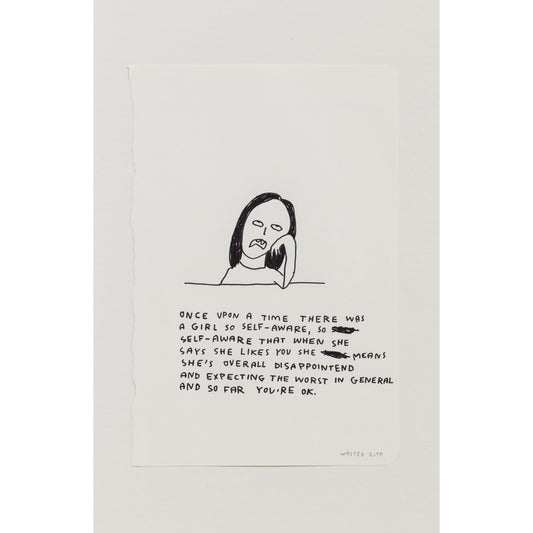 ONCE UPON A TIME THERE WAS
A GIRL SO SELF-AWARE, SO
SELF-AWARE THAT WHEN SHE
SAYS SHE LIKES YOU SHE MEANS
SHE'S OVERALL DISAPPOINTEND
AND EXPECTING THE WORST IN GENERAL
AND SO FAR YOU'RE OK.
WASTED RITA